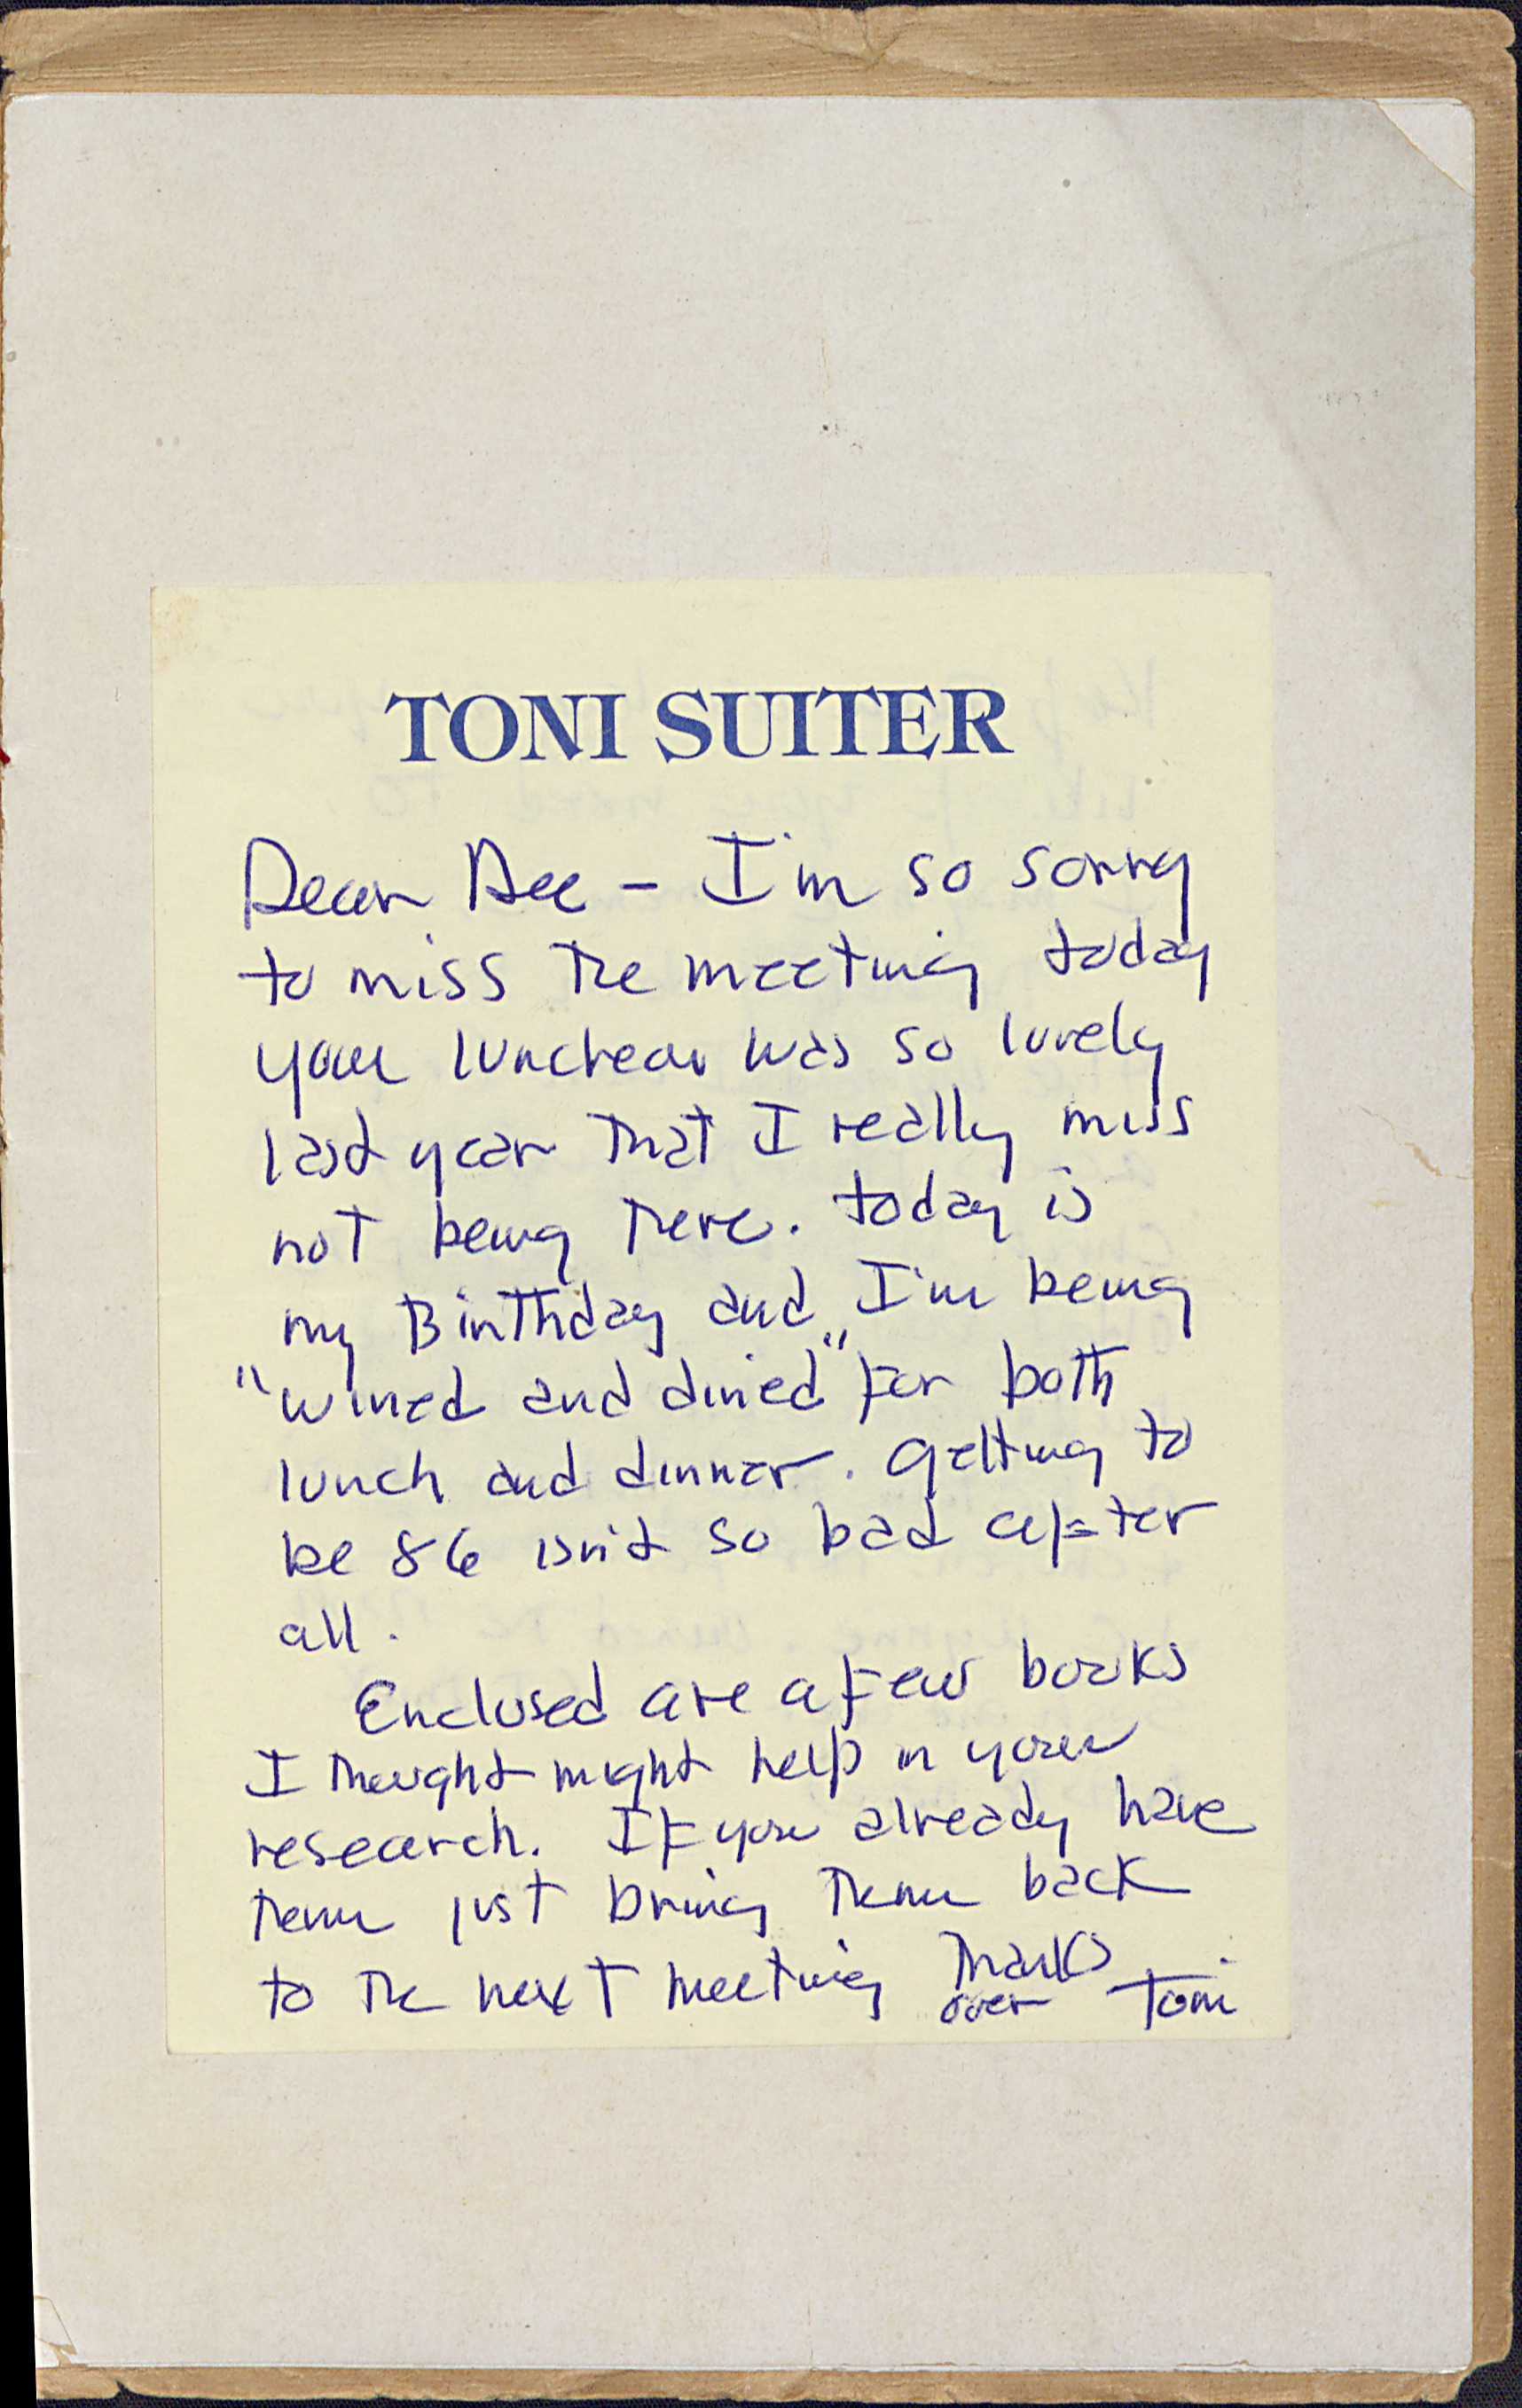 TONI SUITER
Dear Dee - I'm so sorry
to miss the meeting today
your luncheon was so lovely
last year that I really miss
not being there. today is
my Birthday and I'm being
"wined and dined" for both
lunch and dinner. Getting to
be 86 isn't so bad after
all.
Enclosed are a few books
I thought might help in your
research. If you already have
them just bring them back
to the next meeting Thanks
over Toni